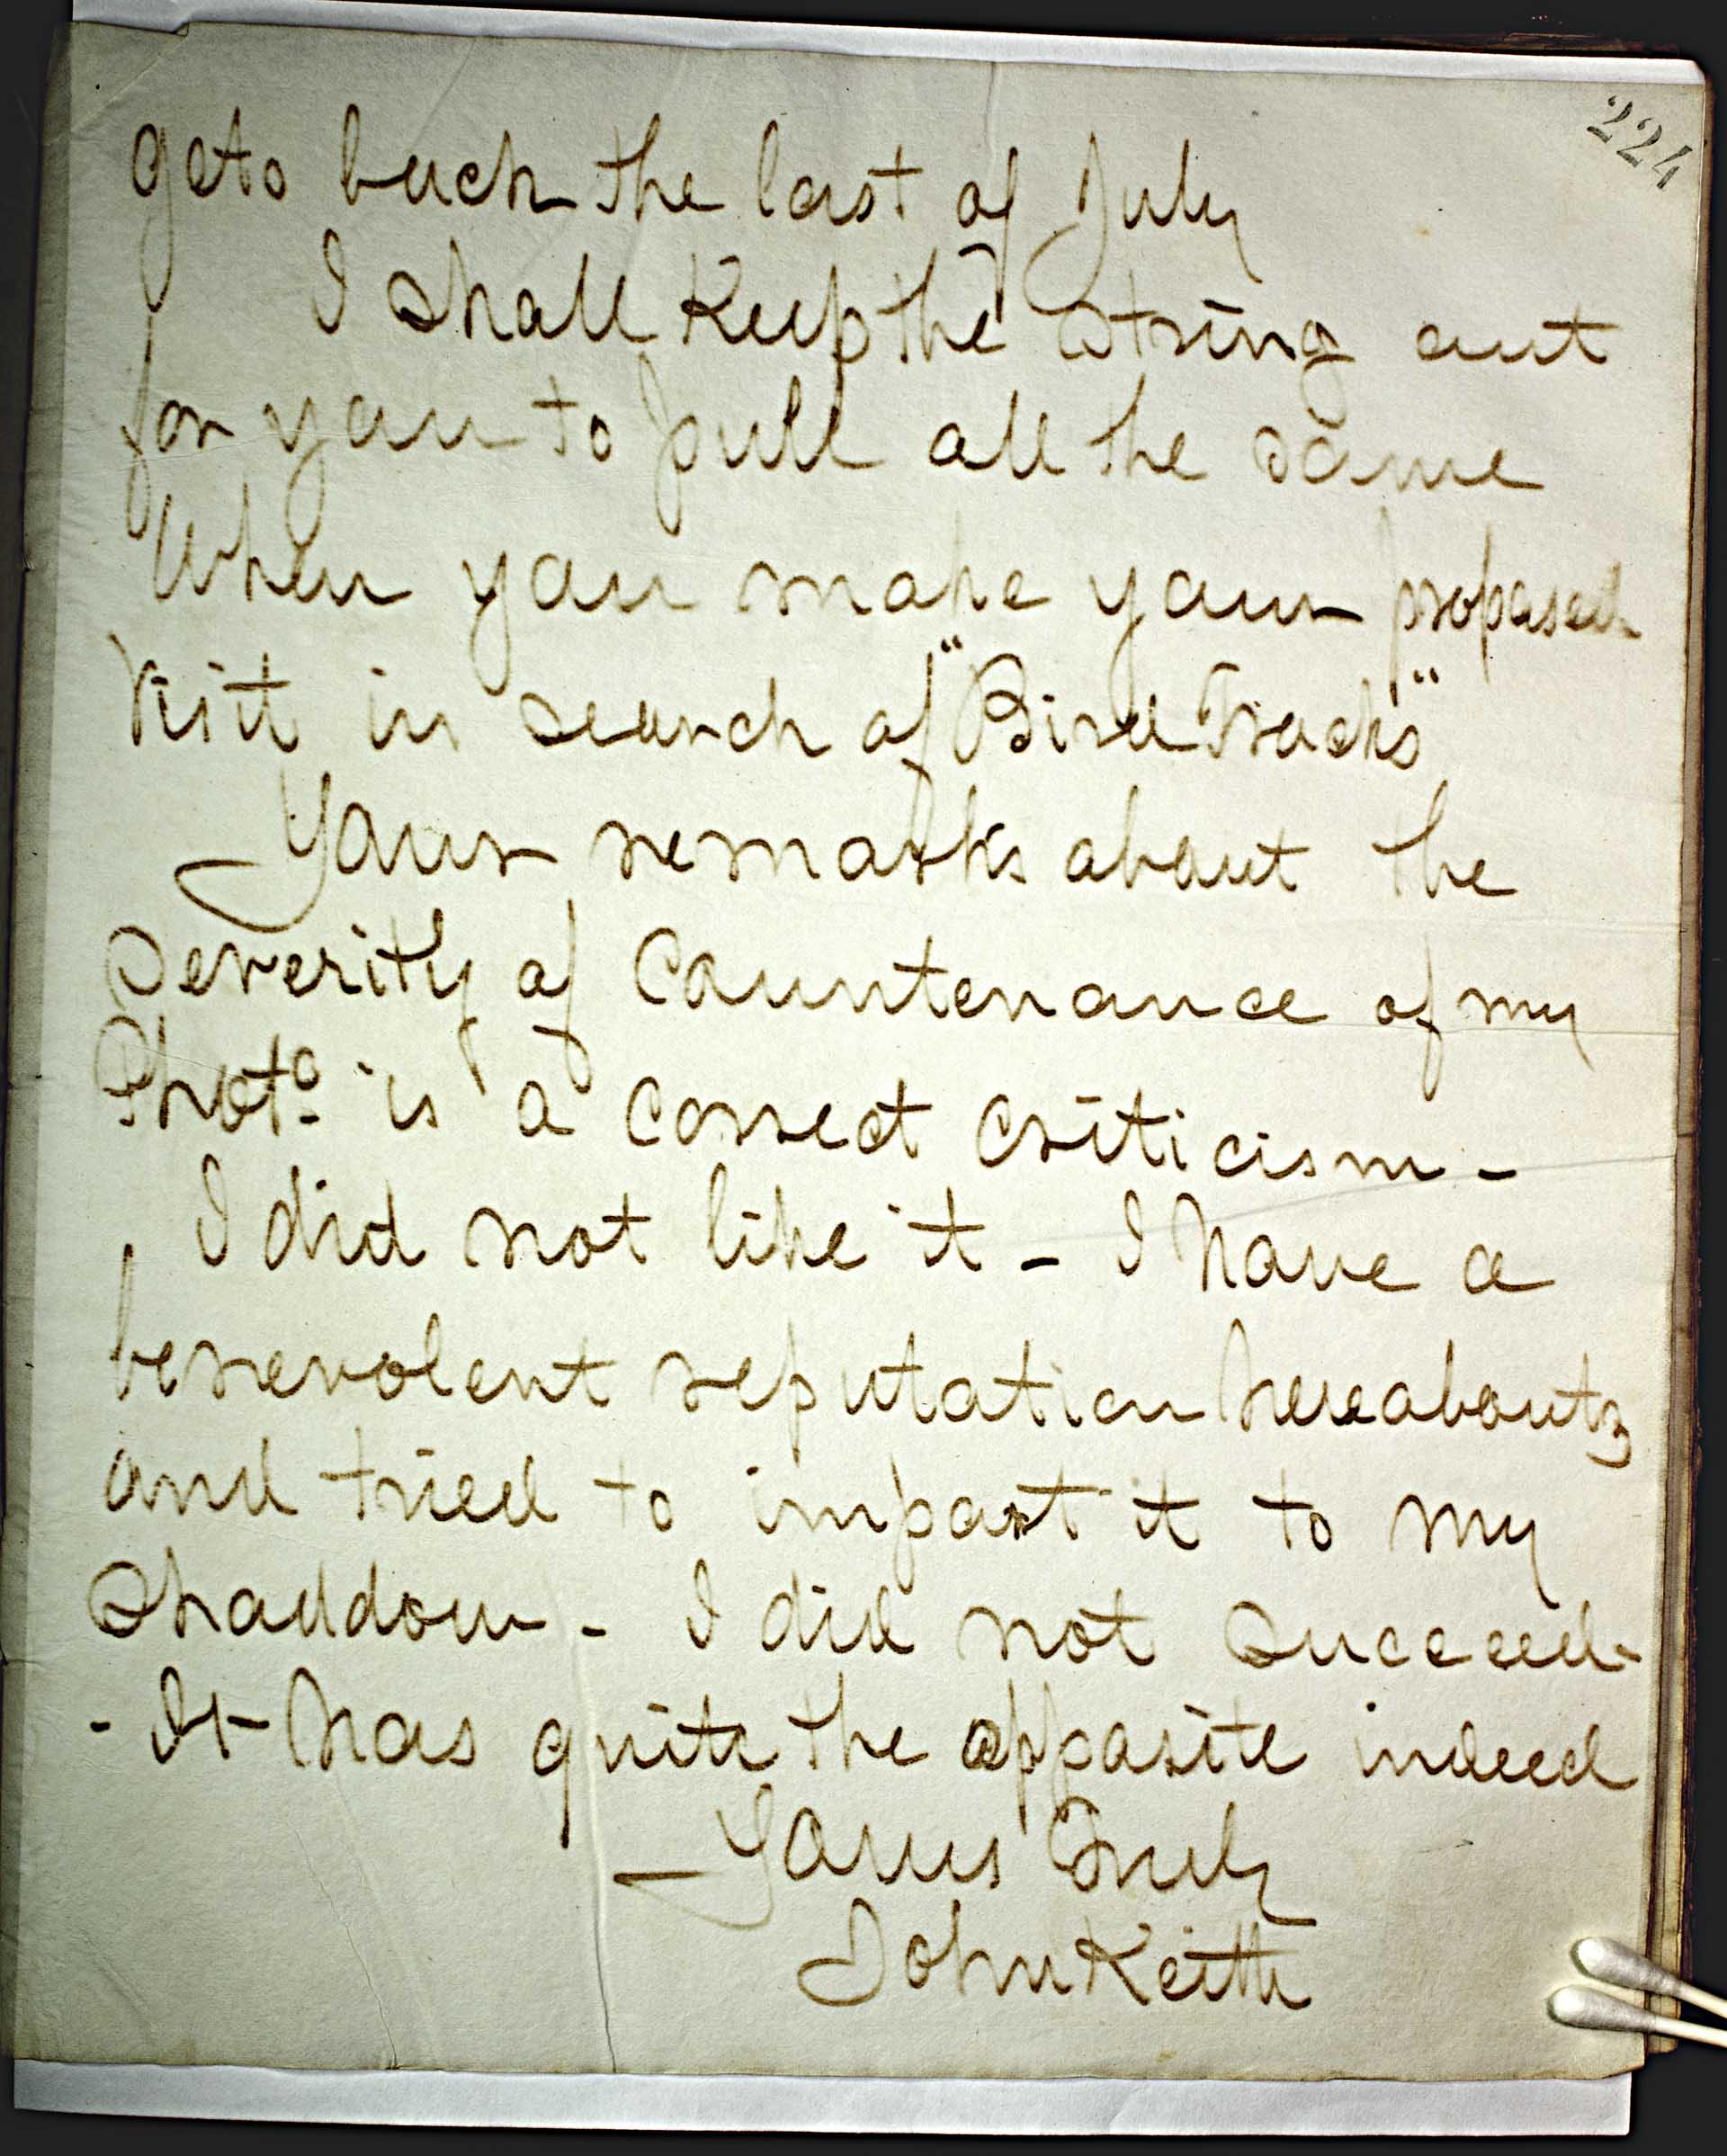 224
gets back the last of July
I shall Keep the string out
for you to pull all the same
When you make your proposed
Visit in search of "Bird Tracks"
Your remarks about the
Severity of Countenance of my
Photo. is a Correct Criticism -
I did not like it - I have a
benevolent reputation hereabouts
and tried to impart it to my
Shaddow - I did not Succeed -
- It has quite the opposite indeed
Yours Truly
John Keith